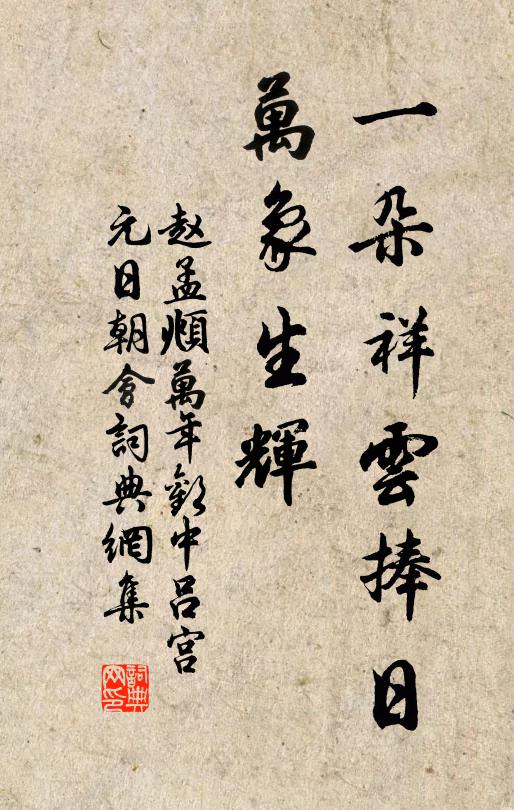 一朵祥雲捧日
萬象生輝
赵孟頫萬年歡中呂宮
元日朝會詞典網集
詞典
网印